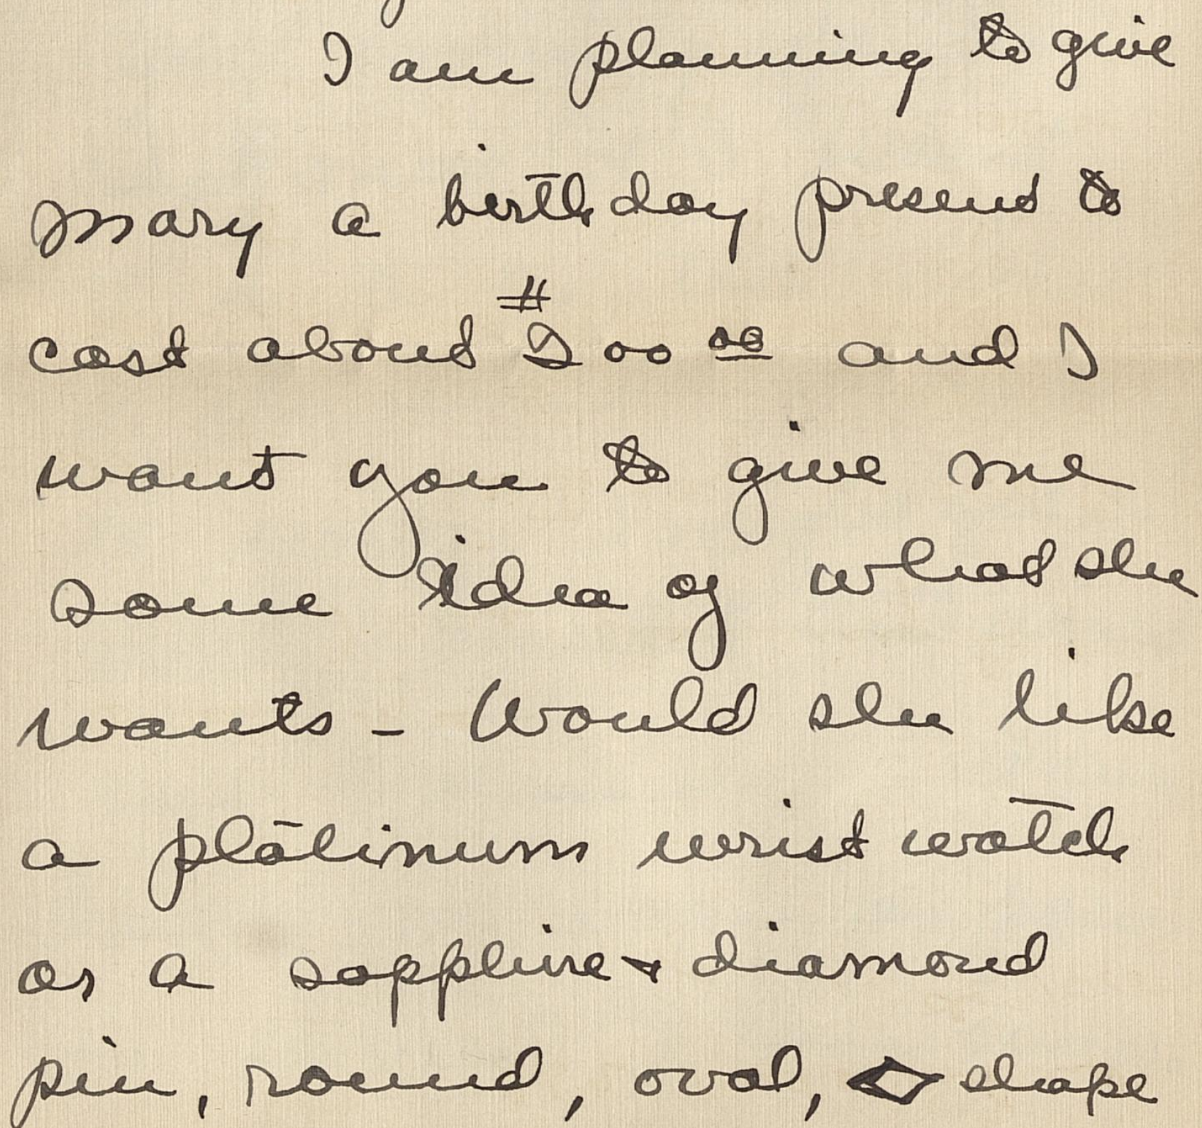 I am planning to give
Mary a birthday present to
cost about $200 00 and I
want you to give me
some idea of what she
wants - Would she like
a platinum wrist watch
or a sapphire & diamond
pin, round, oval, ◇ shape